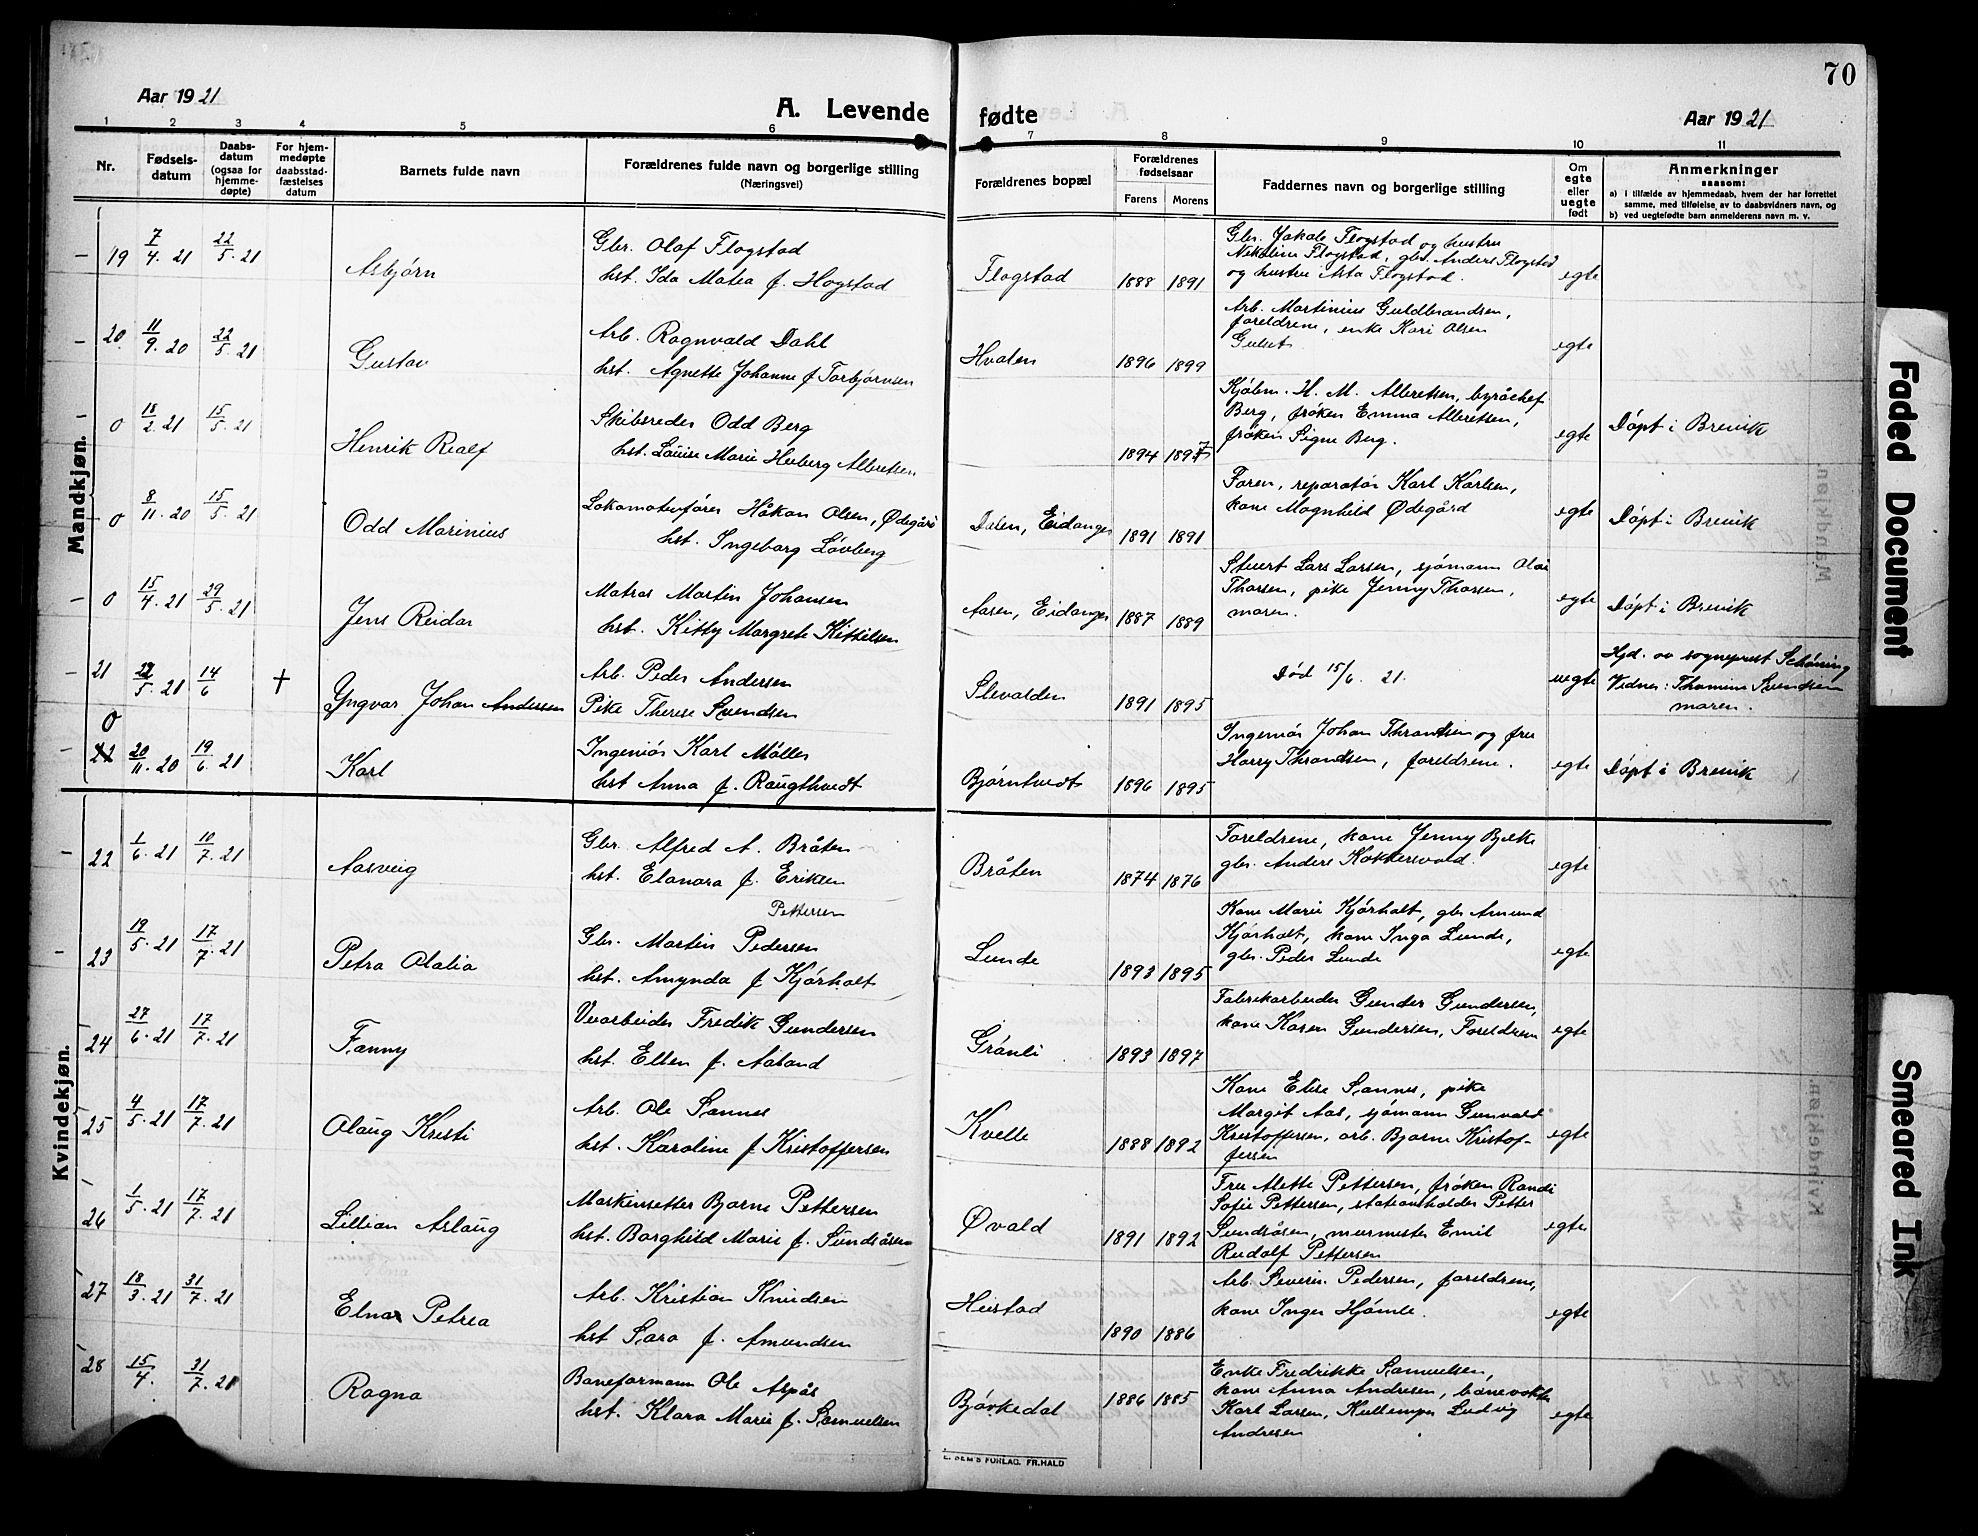 70
Aar 1921
A. Levende
fødte
Aar 1921
1 2 3 4 5 6 7 8 9 10 11
Nr.
Fødsels-
datum
Daabs-
datum
(ogsaa for
hjemme-
døpte)
For hjem-
medøpte
daabsstad-
fæstelses
datum
Barnets fulde navn
Forældrenes fulde navn og borgerlige stilling
(Næringsvei)
Forældrenes bopæl
Forældrenes
fødselsaar
Farens Morens
Faddernes navn og borgerlige stilling
Om
egte
eller
uegte
født
Anmerkninger
saasom:
a) i tilfælde av hjemmedaab, hvem der har forrettet
samme, med tilføielse av to daabsvidners navn, og
b) ved uegtefødte barn anmelderens navn m. v.
Mandkjøn.
19 7/4. 21 22/5. 21 Asbjørn
Gbr. Olaf Flogstad
hst. Ida Matea f. Hogstad
Flogstad 1888 1891
Gbr. Jakob Flogstad og hustru
Nikoline Flogstad, gbr. Anders Flogstad
og hustru Asta Flogstad.
egte
20 11/9. 20 22/5. 21 Gustav
Arb. Ragnvald Dahl
hst. Agnette Johanne f. Torbjørnsen
Hvalen 1896 1899
Arb. Martinius Guldbrandsen,
foreldrene, enke Kari Olsen
Gulset.
egte
0 18/2. 21 15/5. 21 Henrik Realf
Skibsreder Odd Berg
hst. Louise Marie Heiberg Albretsen
1894 1897
Kjøbm. H. M. Albretsen, byråchef
Berg, frøken Emma Albretsen,
frøken Signe Berg.
egte
Døpt i Brevik
0 8/11. 20 15/5. 21 Odd Marinius
Lokomotivfører Håkon Olsen, Ødegård
hst. Ingeborg Løvberg
Dalen, Eidanger 1891 1891
Faren, reparatør Karl Karlsen,
kone Magnhild Ødegård
egte
Døpt i Brevik
0 15/4. 21 29/5. 21 Jens Reidar
Matros Martin Johansen
hst. Kitty Margrete Kittilsen
Aasen, Eidanger 1887 1889
Stuert Lars Larsen, sjømann Olai
Thorsen, pike Jenny Thorsen,
moren.
egte
Døpt i Brevik
21 22/5. 21 14/6 + Yngvar Johan Andersen
Arb. Peder Andersen
Pike Therese Svendsen
Slevolden 1891 1895
Død 15/6. 21.
uegte
Hjd. av sogneprest Schøning
Vidner: Thomine Svendsen
moren.
0
22 20/11. 20 19/6. 21 Karl
Ingeniør Karl Møller
hst Anna f. Raugthvedt
Bjørntvedt 1896 1895
Ingeniør Johan Throndsen og fru
Harry Throndsen, foreldrene.
egte
Døpt i Brevik
Kvindekjøn.
22 1/6. 21 10/7. 21 Aasveig
Gbr. Alfred A. Bråten
hst. Elanora f. Eriksen
Bråten 1874 1876
Foreldrene, kone Jenny Bjelke
gbr. Anders Kokkersvold.
egte
23 19/5. 21 17/7. 21 Petra Otalia
Pettersen
Gbr. Martin Pedersen
hst. Amynda f. Kjørholt
Lunde 1893 1895
Kone Marie Kjørholt, gbr Amund
Kjørholt, kone Inga Lunde,
gbr. Peder Lunde
egte
24 27/6. 21 17/7. 21 Fanny
Veiarbeider Fredik Gundersen
hst. Ellen f. Aaland
Grønli 1893 1897
Fabrikarbeider Gunder Gundersen,
kone Karen Gundersen, Foreldrene
egte
25 4/5. 21 17/7. 21 Olaug Kristi
Arb. Ole Sannes
hst. Karoline f Kristoffersen
Kvelle 1888 1892
Kone Elise Sannes, pike
Margit Aas, sjømann Gunvald
Kristoffersen, arb. Bjarne Kristof-
fersen
egte
26 1/5. 21 17/7. 21 Lillian Aslaug
Maskinsetter Bjarne Pettersen
hst. Borghild Marie f. Sundsåsen
Øvald 1891 1892
Fru Alette Pettersen, frøken Randi
Sofie Pettersen, stationsholder Petter
Sundsåsen, murmester Emil
Rudolf Pettersen
egte
27 18/3. 21 31/7. 21 Elna Petrea
Arb. Kristian Knudsen
hst Sara f. Amundsen
Heistad 1890 1886
Arb. Severin Pedersen, foreldrene,
kone Inger Hjømle.
egte
28 15/4. 31/7. 21 Ragna
Baneformann Ole Aspås
hst. Klara Marie f. Samuelsen
Bjørkedal 1886 1885
Enke Fredrikke Samuelsen,
kone Anna Andresen, banevokter
Karl Larsen, Ludvig
Andresen
egte
FORLAG. FR. HALD
Faded Document
Smeared Ink